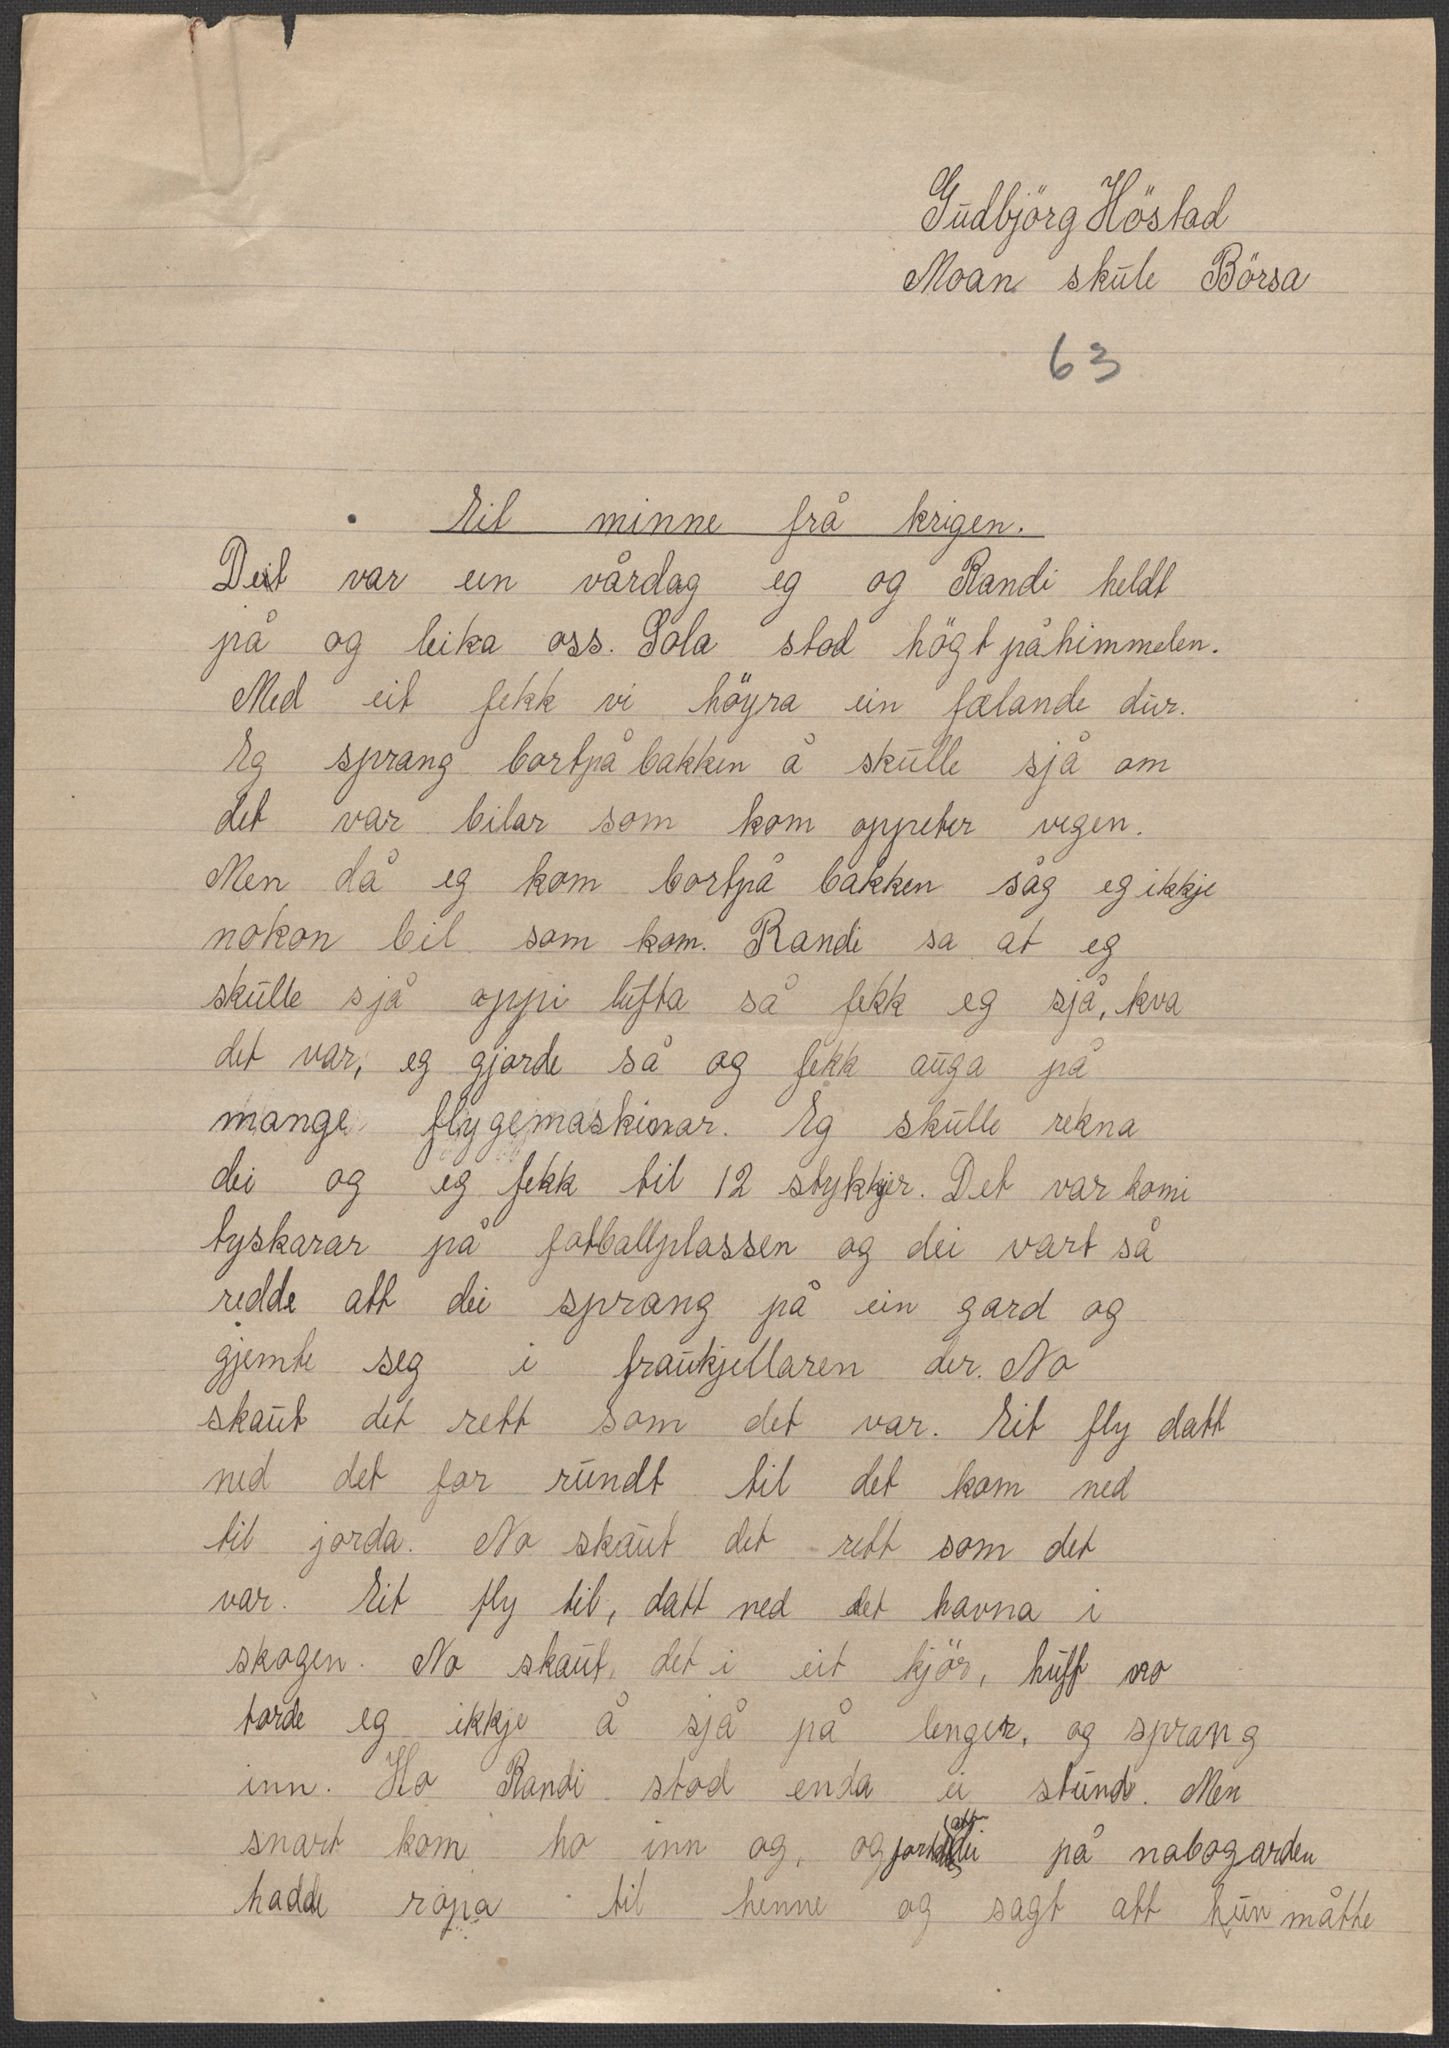 Gudbjörg Höstad
Moan skule Börsa
63
Eit minne frå krigen.
Det var ein vårdag eg og Randi heldt
på og leika oss. Sola stod högt på himmelen.
Med eit fekk vi höyra ein fælande dur.
Eg sprang bortpå bakken å skulle sjå om
det var bilar som kom oppeter vegen.
Men då eg kom bortpå bakken såg eg ikkje
nokon bil som kom. Randi sa at eg
skulle sjå oppi lufta så fekk eg sjå, kva
det var, eg gjorde så og fekk auga på
mange flygemaskinar. Eg skulle rekna
dei og eg fekk til 12 stykkjer. Det var komi
tyskarar på fotballplassen og dei vart så
redde att dei sprang på ein gard og
gjemte seg i fraukjellaren der. No
skaut det rett som det var. Eit fly datt
ned det for rundt til det kom ned
til jorda. No skaut det rett som det
var. Eit fly til, datt ned det havna i
skogen. No skaut det i eit kjör, huff no
torde eg ikkje å sjå på lenger, og sprang
inn. Ho Randi stod enda ei stund. Men
snart kom ho inn og, og att dei på nabogarden
hadde ropa til henne og sagt att hun måtte